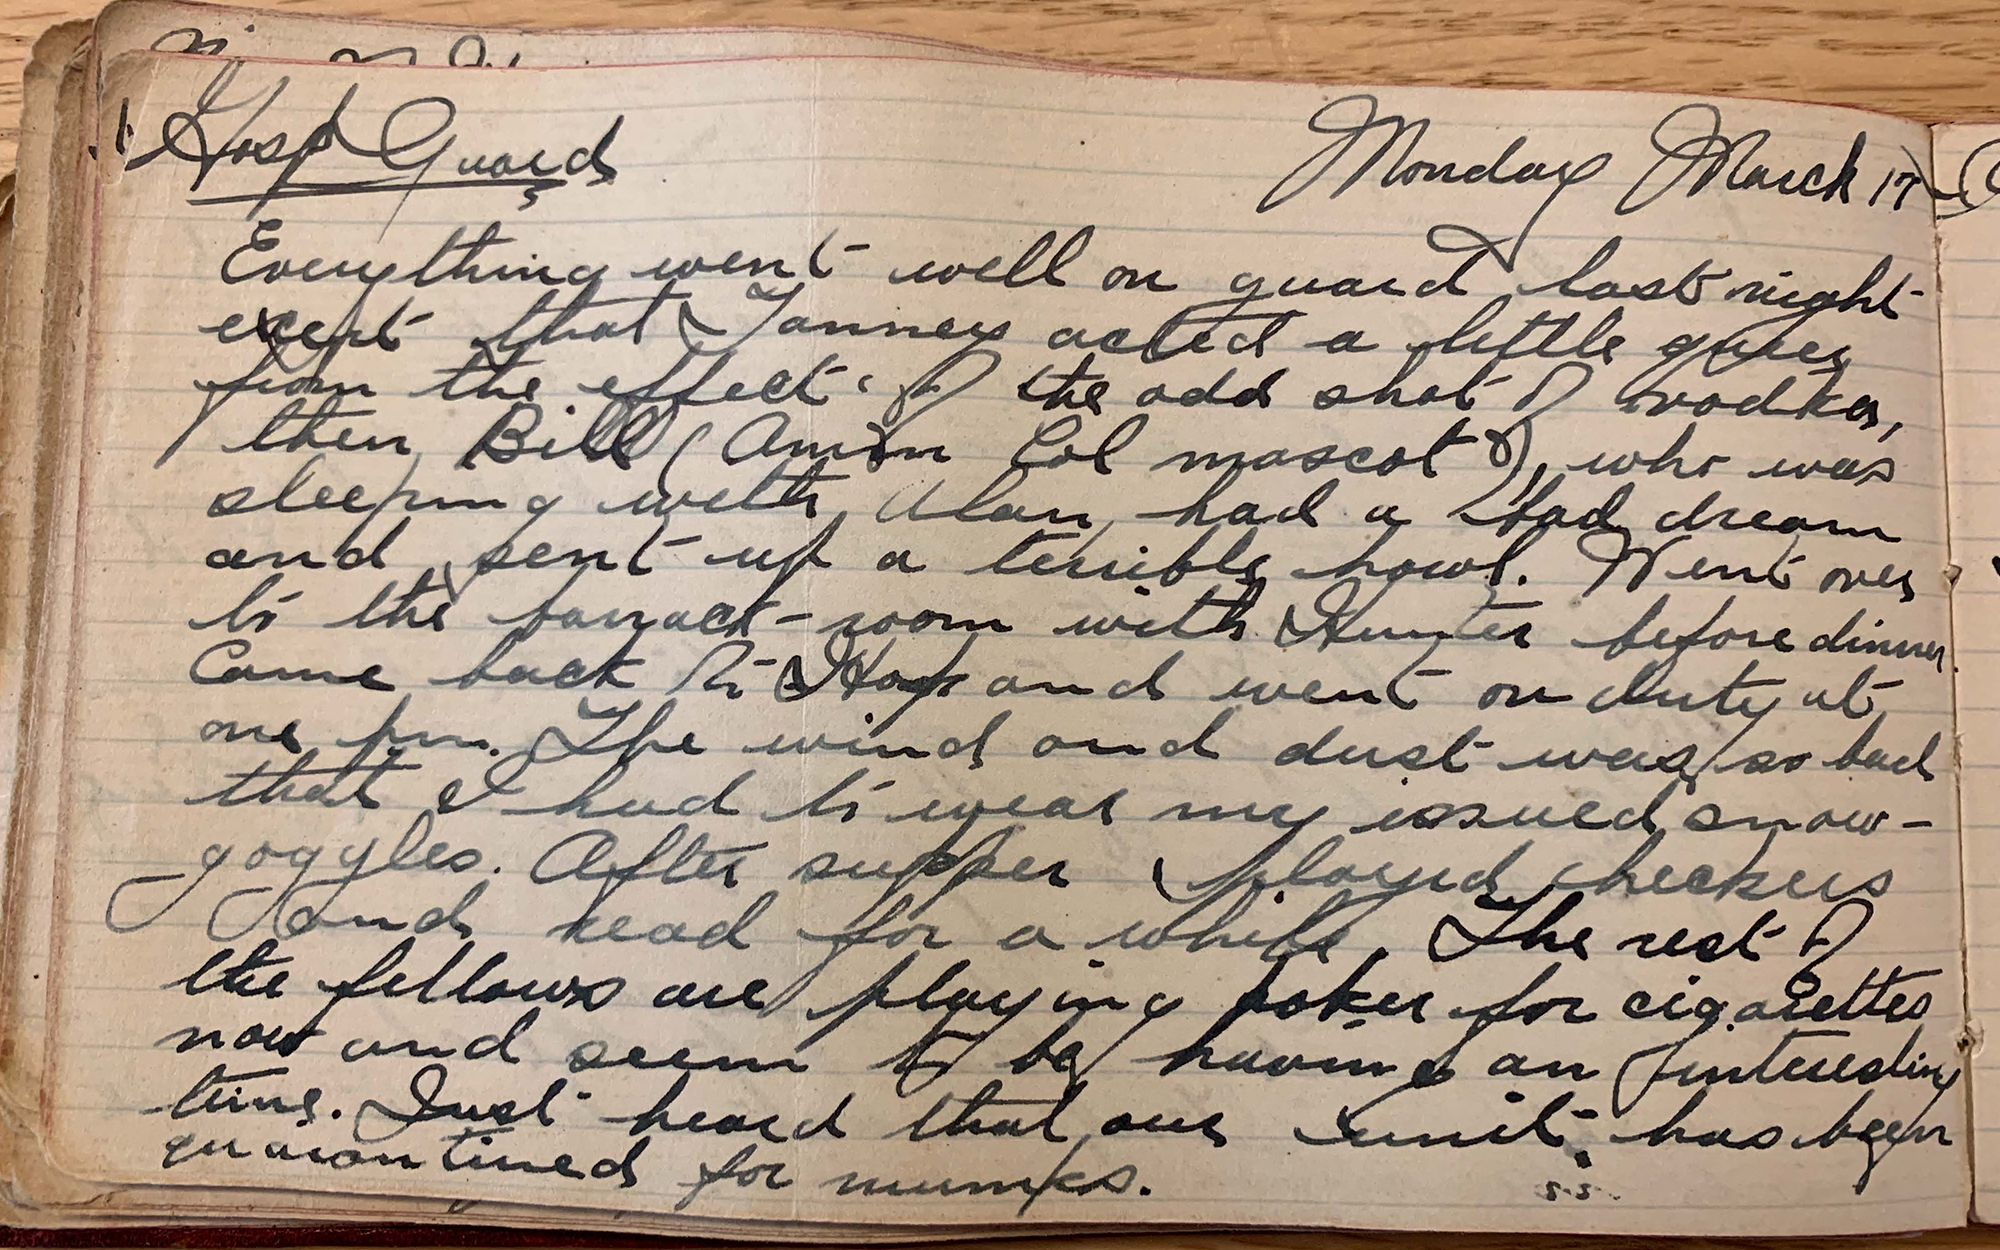 Hosp Guard
Monday March 17
Everything went well on guard last night
except that Tanney acted a little queer
from the effect of the odd shot of vodka,
then Bill (Amm Col mascot), who was
sleeping with Alan, had a bad dream
and sent up a terrible howl. Went over
to the barrack-room with Hunter before dinner.
Came back to Hosp and went on duty at
one p.m. The wind and dust was so bad
that I had to wear my issued snow-
goggles. After supper played checkers
and read for a while. The rest of
the fellows are playing poker for cigarettes
now and seem to be having an interesting
time. Just heard that our unit has been
quarantined for mumps.